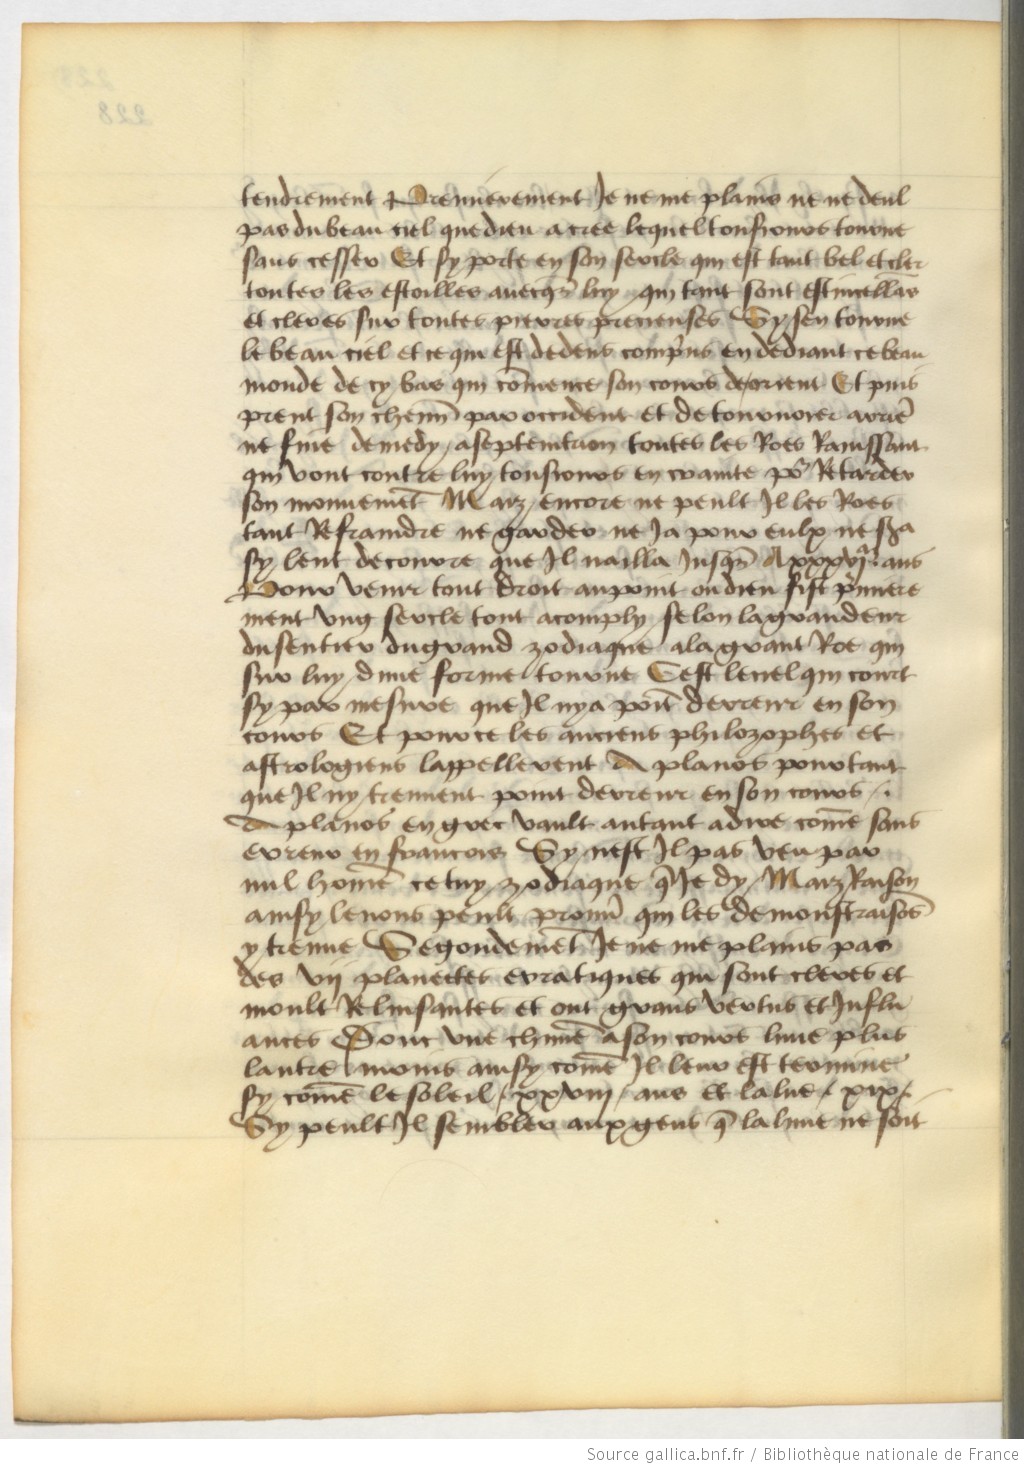 tendrement Premierement Je ne me plains ne ne deul
pas du beau ciel que dieu a cree lequel tousiours tourne
sans cesser Et sy porte en son sercle qui est tant bel et cler
toutes les estoilles auecqs luy qui tant sont estincellãs
et cleres sur toutes pierres precieuses Sy sen tourne
le beau ciel et ce qui est dedens comprins en dediant ce beau
monde de cy bas qui cõmence son cours dorient Et puis
prent son chemĩ par occident et de tournoier arrier
ne fine de medy a septemtrion toutes les Roes Rauissant
qui vont contre luy tousiours en crainte po Retarder
son mouuemẽt Maiz encore ne peult Il les Roes
tant Refraindre ne garder ne Ja pour eulx ne sra
sy lent de courre que Il naille Jusqs A xxxvjm ans
Pour venir tout droit au point ou dieu fist pmiere
ment vng sercle tout acomply selon la grandeur
du sentier du grand zodiaque a la grant Roe qui
sur luy dune forme tourne Cest le ciel qui court
sy par mesure que Il ny a poĩt derreur en son
cours Et pour ce les anciens philozophes et
astrologiens lappellerent A planos pour tant
que Il ny treuuent point derreur en son cours
A planos en grec vault autant a dire cõme sans
erreur en francois Sy nest Il pas veu par
nul homẽ cetuy zodiaque q̃ Je dy Maiz Raison
ainsy le nous peult prouuer qui les demonstraisõs
y treuue Segondemẽt Je ne me plains pas
des vij planectes erratiques qui sont cleres et
moult Reluisantes et ont grans vertus et Influ
ances Dont vne chũne a son cours lune plus
lautre moins ainsy cõme Il leur est termine
sy cõme le soleil / xxviij / ans et la lue / xix /
Sy peult Il sembler aux gens q̃ la lune ne soit
Source gallica.bnf.fr / Bibliothèque nationale de France